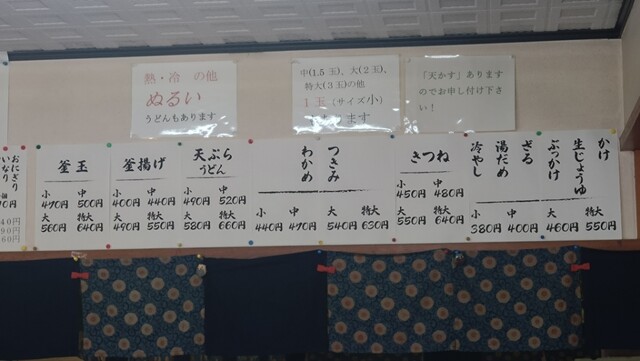 熱・冷 の他
ぬるい
うどんもあります
中(1.5 玉)、大(2玉)、
特大(3玉)の他
1 玉 (サイズ小)
あります
「天かす」あります
のでお申し付け下さ
い!
かけ
生じょうゆ
ぶっかけ
ざる
湯だめ
冷やし
小 中 大 特大
380円 400円 460円 550円
きつね
小 中
450円 480円
大 特大
550円 640円
つきみ
わかめ
小 中 大 特大
440円 470円 540円 630円
天ぷら
うどん
小 中
490円 520円
大 特大
580円 660円
釜揚げ
小 中
400円 440円
大 特大
490円 550円
釜玉
小 中
470円 500円
大 特大
560円 640円
おにぎり
いなり